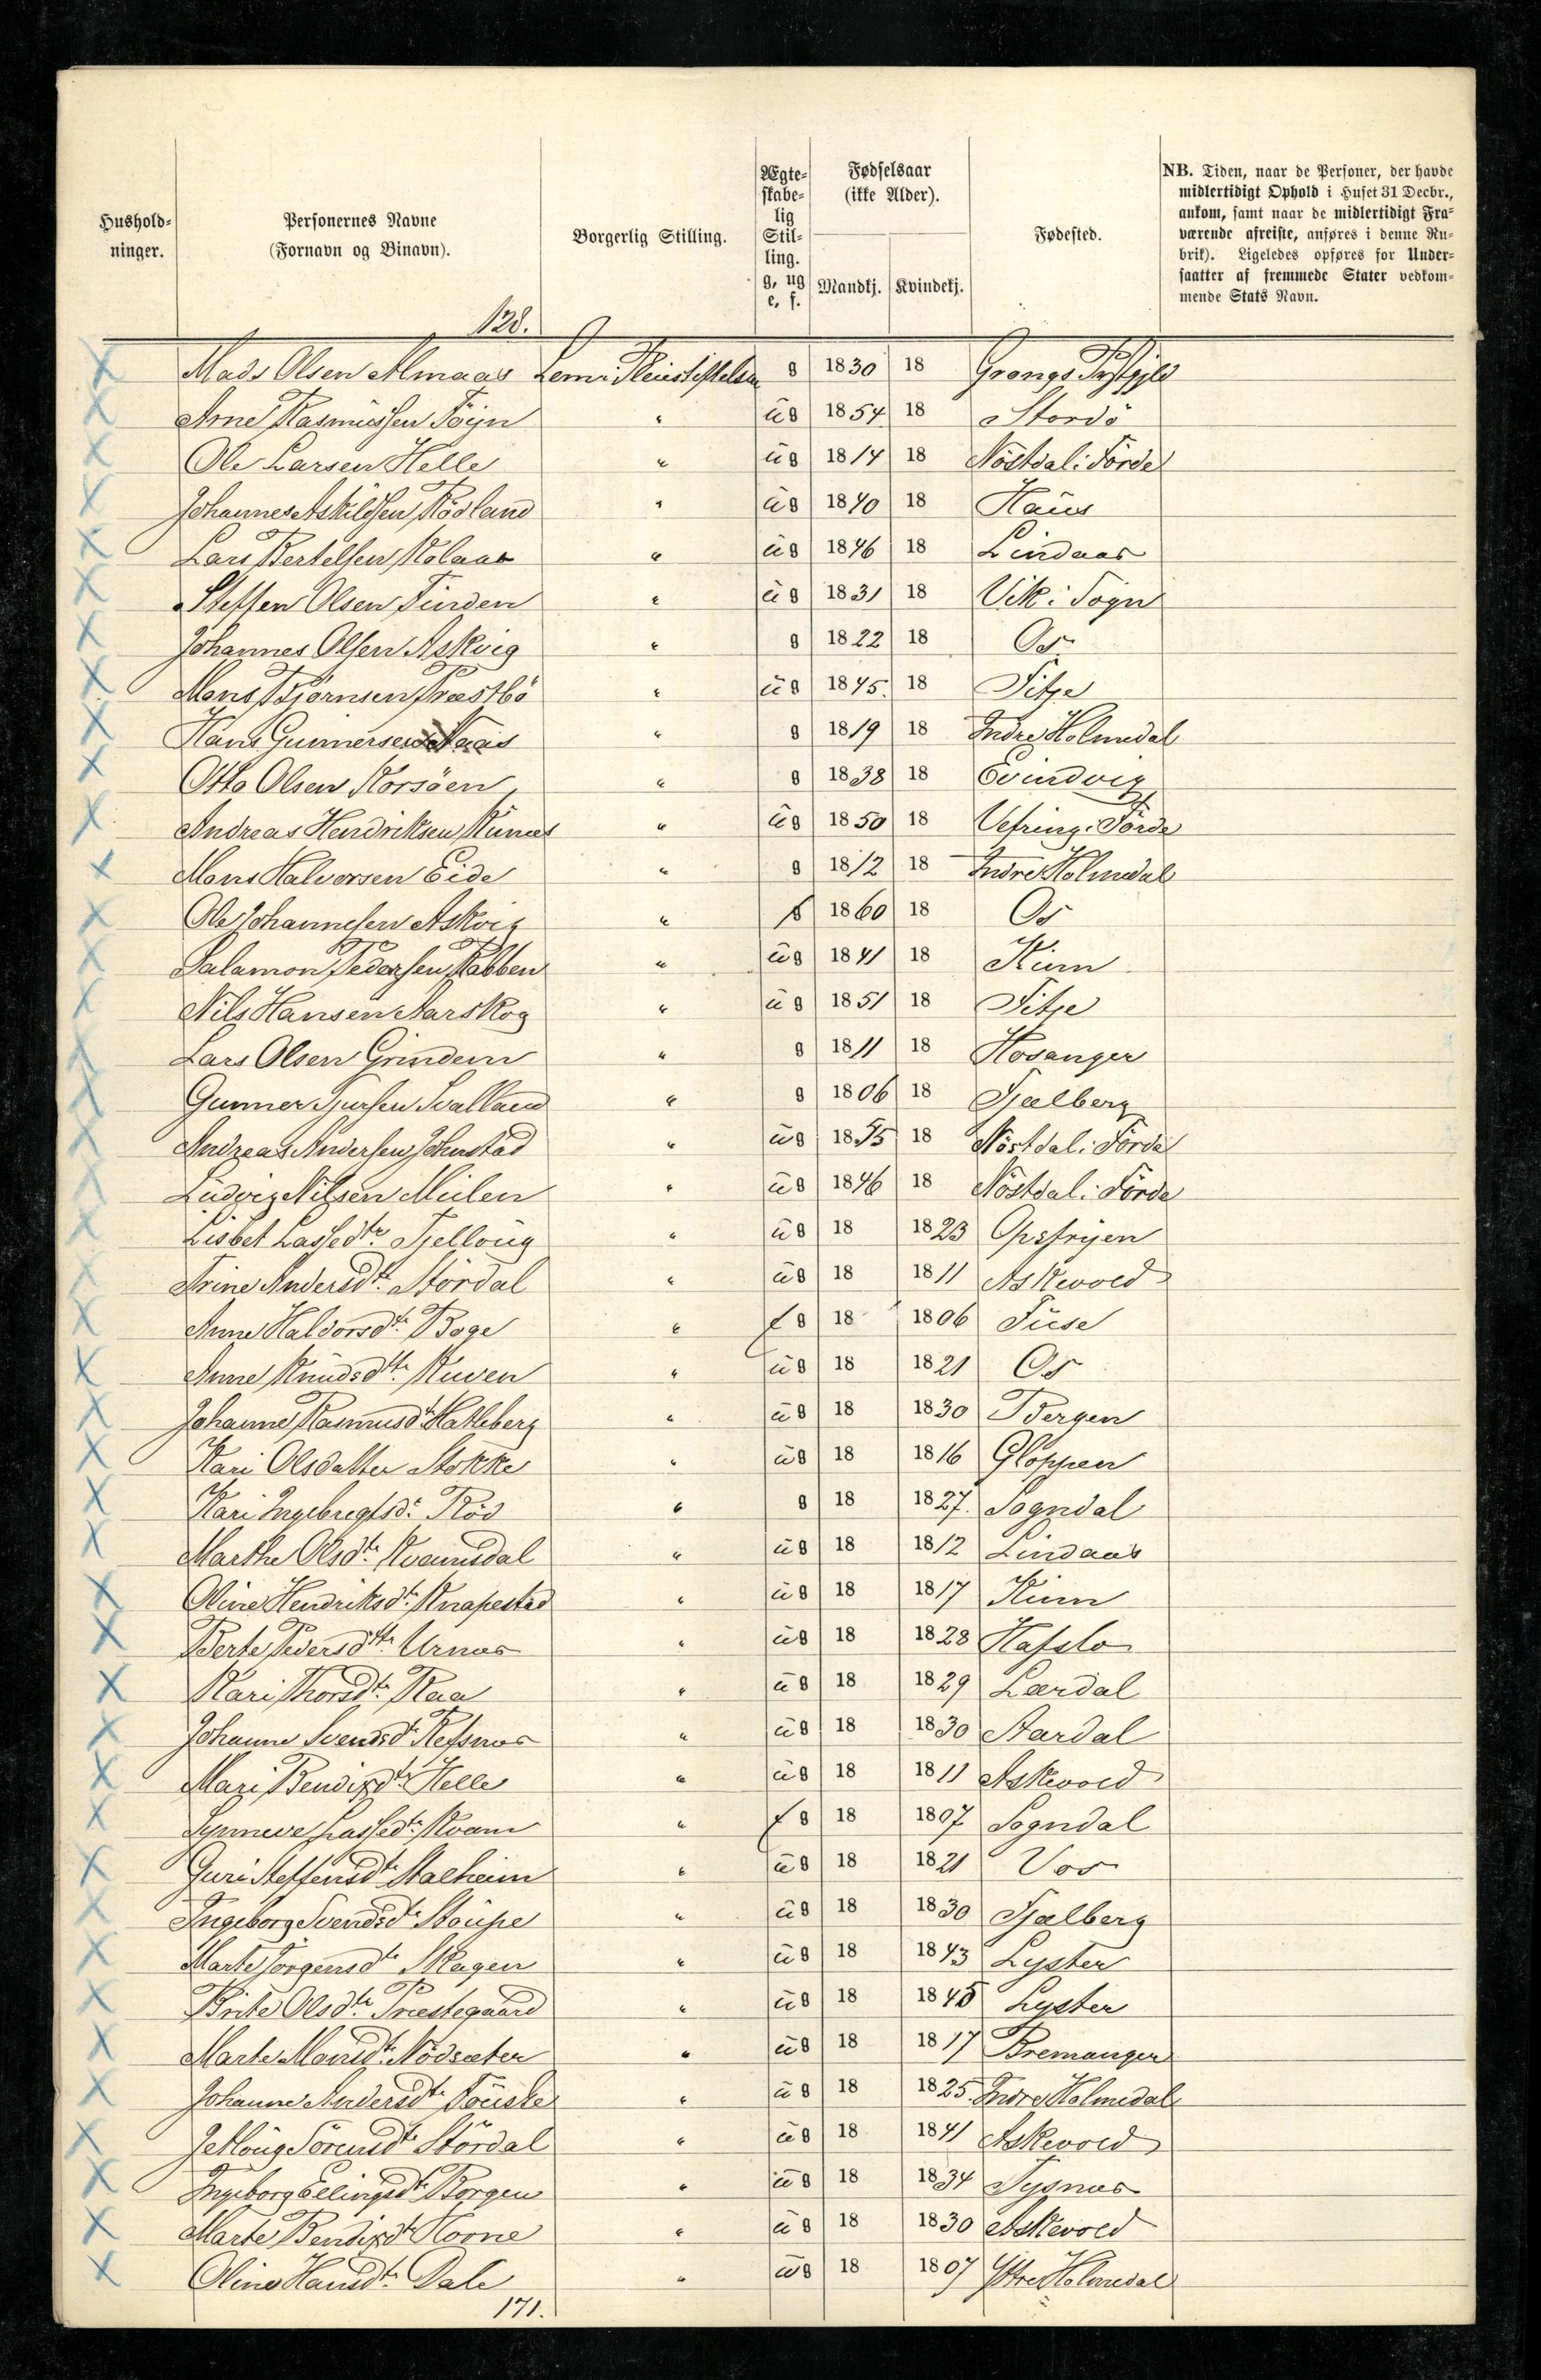 Hushold-
ninger.
Personernes Navne
(Fornavn og Binavn).
Borgerlig Stilling.
Ægte-
skabe-
lig
Stil-
ling.
g, ug
e, f.
Fødselsaar
(ikke Alder).
Mandkj. Kvindekj.
Fødested.
NB. Tiden, naar de Personer, der havde
midlertidigt Ophold i Huset 31 Decbr.,
ankom, samt naar de midlertidigt Fra-
værende afreiste, anføres i denne Ru-
brik). Ligeledes opføres for Under-
saatter af fremmede Stater vedkom-
mende Stats Navn.
128.
Mads Olsen Almaas Lem i Pleiestiftelsen g 1830 18 Grongs Præstgjeld
Arne Rasmussen Töijn " ug 1854 18 Stordö
Ole Larsen Helle " ug 1814 18 Nöstdal i Förde
Johannes Askildsen Rödland " ug 1840 18 Haus
Lars Bertelsen Kolaas " ug 1846 18 Lindaas
Steffen Olsen Finden " ug 1831 18 Vik i Sogn
Johannes Olsen Askvig " g 1822 18 Os
Mons Bjørnsen Præstbö " ug 1845. 18 Fitje
Hans Gunnersen " g 1819 18 Indre Holmedal
Otto Olsen Korsöen " g 1838 18 Evindvig
Andreas Hendriksen Kunæs " ug 1850 18 Vefring i Förde
Mons Halvorsen Eide " g 1812 18 Indre Holmedal
Ole Johannesen Askvig " 1860 18 Os
Salamon Pedersen Rabben " ug 1841 18 Kinn
Nils Hansen Aarskog " ug 1851 18 Fitje
Lars Olsen Grindem " g 1811 18 Hosanger
Gunner Svalland " g 1806 18 Fjælberg
Andreas Andersen " ug 1855 18 Nöstdal i Förde
Ludvig Nilsen Mulen " ug 1846 18 Nöstdal i Förde
Lisbet Lassedtr. Tjellöug " ug 18 1823 Opstryen
Trine Andersdt. Stördal " ug 18 1811 Askevold
Anne Haldorsdt. Boge " f g 18 1806 Fuse
Anne Knudsdtt. Kuven " ug 18 1821 Os
Johanne Rasmusdt. Hatleberg " ug 18 1830 Bergen
Kari Olsdatter Stokke " ug 18 1816 Gloppen
Kari Ingebregtsd. Röd " g 18 1827. Sogndal
Marthe Olsdt. Kvamsdal " ug 18 1812 Lindaas
Oline Hendriksdt. Knapestad " ug 18 1817 Kinn
Berte Pedersdtr Urnæs " ug 18 1828 Hafslo
Kari Thorsdt. Raa " ug 18 1829 Lærdal
Johanne Svendsdt. Refsnæs " ug 18 1830 Aardal
Mari Bendixdt. Helle " ug 18 1811 Askevold
Synneve Lassedt. Kvam " f g 18 1807 Sogndal
Guri Steffensdt. Stalheim " ug 18 1821 Vos
Ingeborg Svendsdt. Stöupe " ug 18 1830 Fjælberg
Marte Jörgensdt. Skagen " ug 18 1843 Lyster
Brite Olsdtr. Præstegaard " ug 18 1845 Lyster
Marte Monsdt. Nödsæter " ug 18 1817 Bremanger
Johanne Andersdt. " ug 18 1825. Indre Holmedal
Jetlöug Sörensdt. Stördal " ug 18 1841 Askevold
Ingeborg Ellingsdt. Borgen " ug 18 1834 Tysnæs
Marte Bendixdt. Horne " ug 18 1830 Askevold
Oline Hansdt. Dale " ug 18 1807 Yttre Holmedal
171.